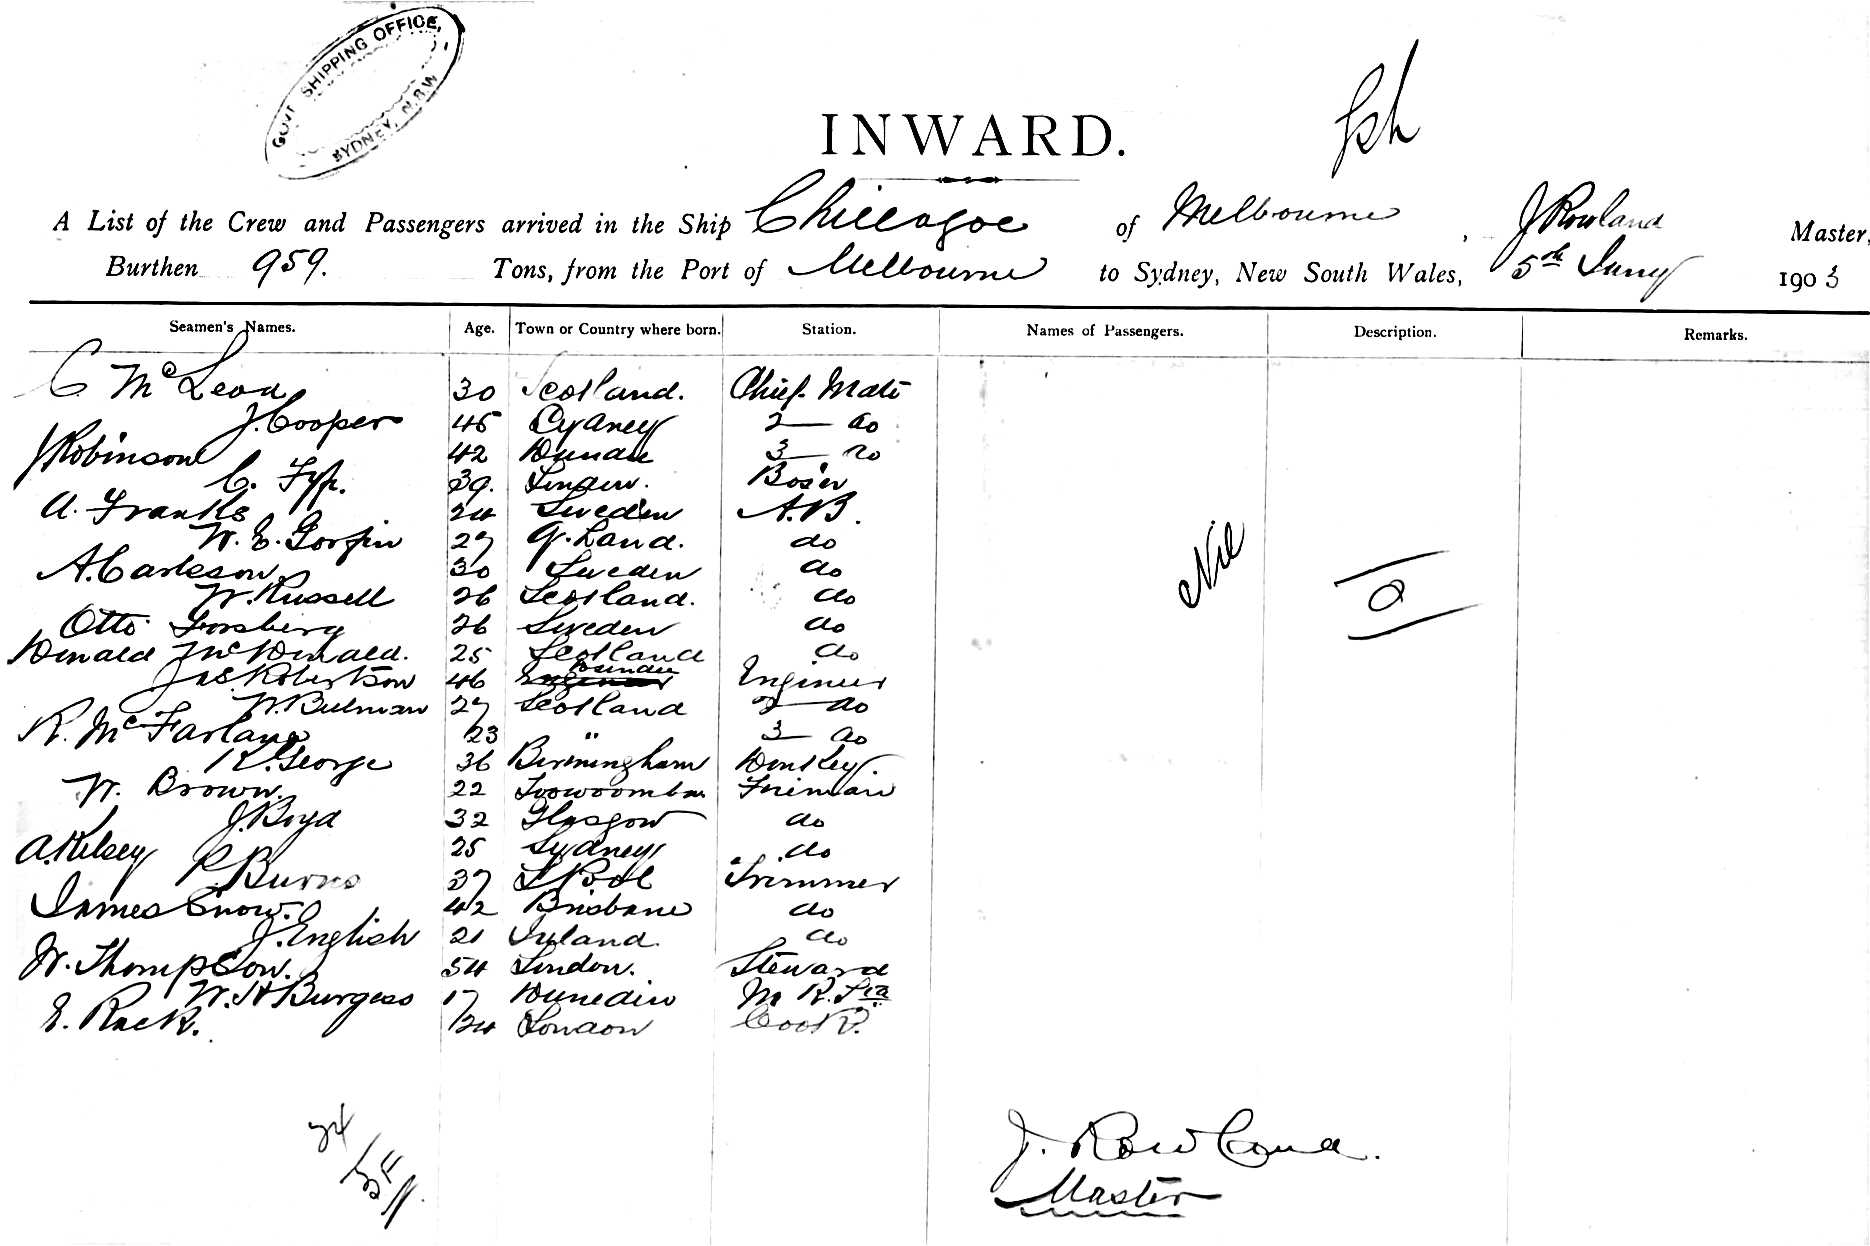 GOVT SHIPPING OFFICE,
SYDNEY, N.S.W
INWARD.
A List of the Crew and Passengers arrived in the Ship Chillagoe of Melbourne, J Rowland Master,
Burthen 959. Tons, from the Port of Melbourne to Sydney, New South Wales, 5th Jany 1903
Seamen's Names. Age. Town or Country where born. Station. Names of Passengers. Description. Remarks.
C McLeod 30 Scotland. Chief Mate
J. Cooper 45 Sydney 2 do
J Robinson 42 Dundee 3 do
C. Fyfe. 39. London. Bos'en
A. Franks 24 Sweden A.B.
W. E. 27 do
A. Carlsson 30 Sweden do
W. Russell 26 Scotland. do
Otto Forsberg 26 Sweden do
Donald McDonald. 25 Scotland do
Jas. Robertson 46 Dundee Engineer
W. Bulman 27 Scotland 2 do
R. McFarlane 23 " 3 do
R. George 36 Birmingham Donkey.
W. Brown. 22 Toowoomba Fireman
J. Boyd 32 Glasgow do
A. Kelsey 25 Sydney do
R Burns 37 L'Pool Trimmer
James Snow. 42 Brisbane do
J. English 21 Ireland. do
W. Thompson. 54 London. Steward
W. H Burgess 17 Dunedin M. R.
E. Rack. 24 London Cook.
Nil
0
J. Rowland.
Master